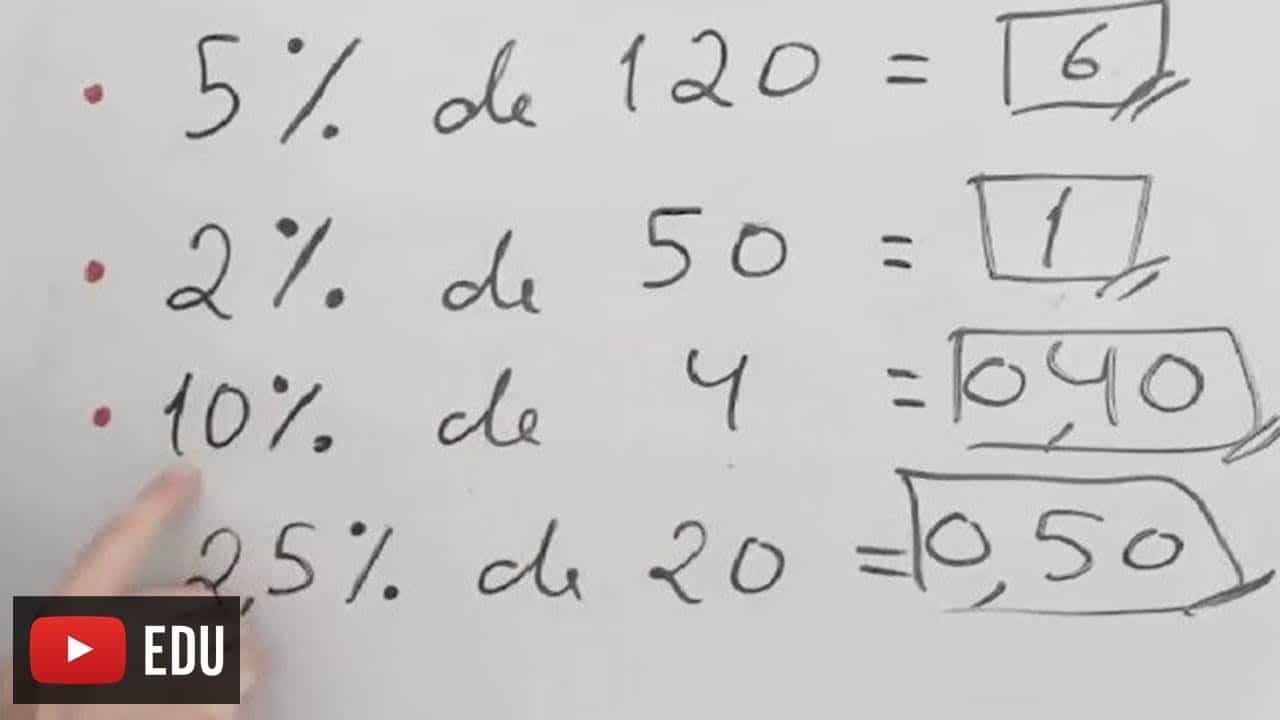 5% de 120 = 6
2% de 50 = 1
10% de 4 = 0,40
2,5% de 20 = 0,50
EDU